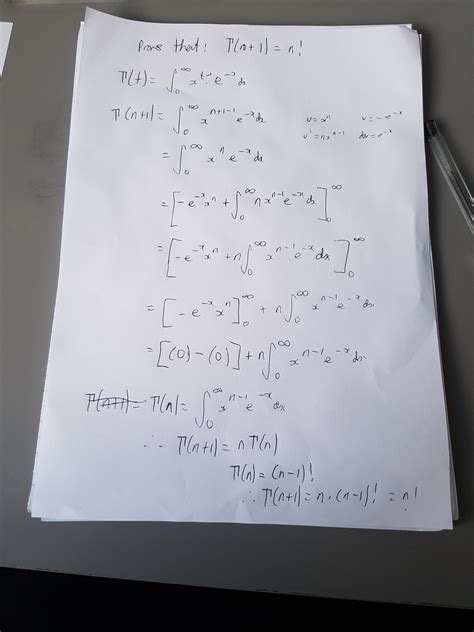 Prove that: Γ(n+1) = n!
Γ(t) = ∫₀^∞ x^(t-1) e^(-x) dx
Γ(n+1) = ∫₀^∞ x^(n+1-1) e^(-x) dx
u = x^n v = -e^(-x)
u' = nx^(n-1) dv = e^(-x)
= ∫₀^∞ x^n e^(-x) dx
= [-e^(-x) x^n + ∫₀^∞ n x^(n-1) e^(-x) dx]₀^∞
= [-e^(-x) x^n + n ∫₀^∞ x^(n-1) e^(-x) dx]₀^∞
= [-e^(-x) x^n]₀^∞ + n ∫₀^∞ x^(n-1) e^(-x) dx
= [(0) - (0)] + n ∫₀^∞ x^(n-1) e^(-x) dx
Γ(n+1) = Γ(n) = ∫₀^∞ x^(n-1) e^(-x) dx
∴ Γ(n+1) = n Γ(n)
Γ(n) = (n-1)!
∴ Γ(n+1) = n · (n-1)! = n!